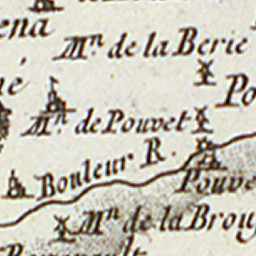 ena
Mn de la Berie
é
Po
Mn. de Pouvet
Bouleur R.
Pouve
Mn de la Brou